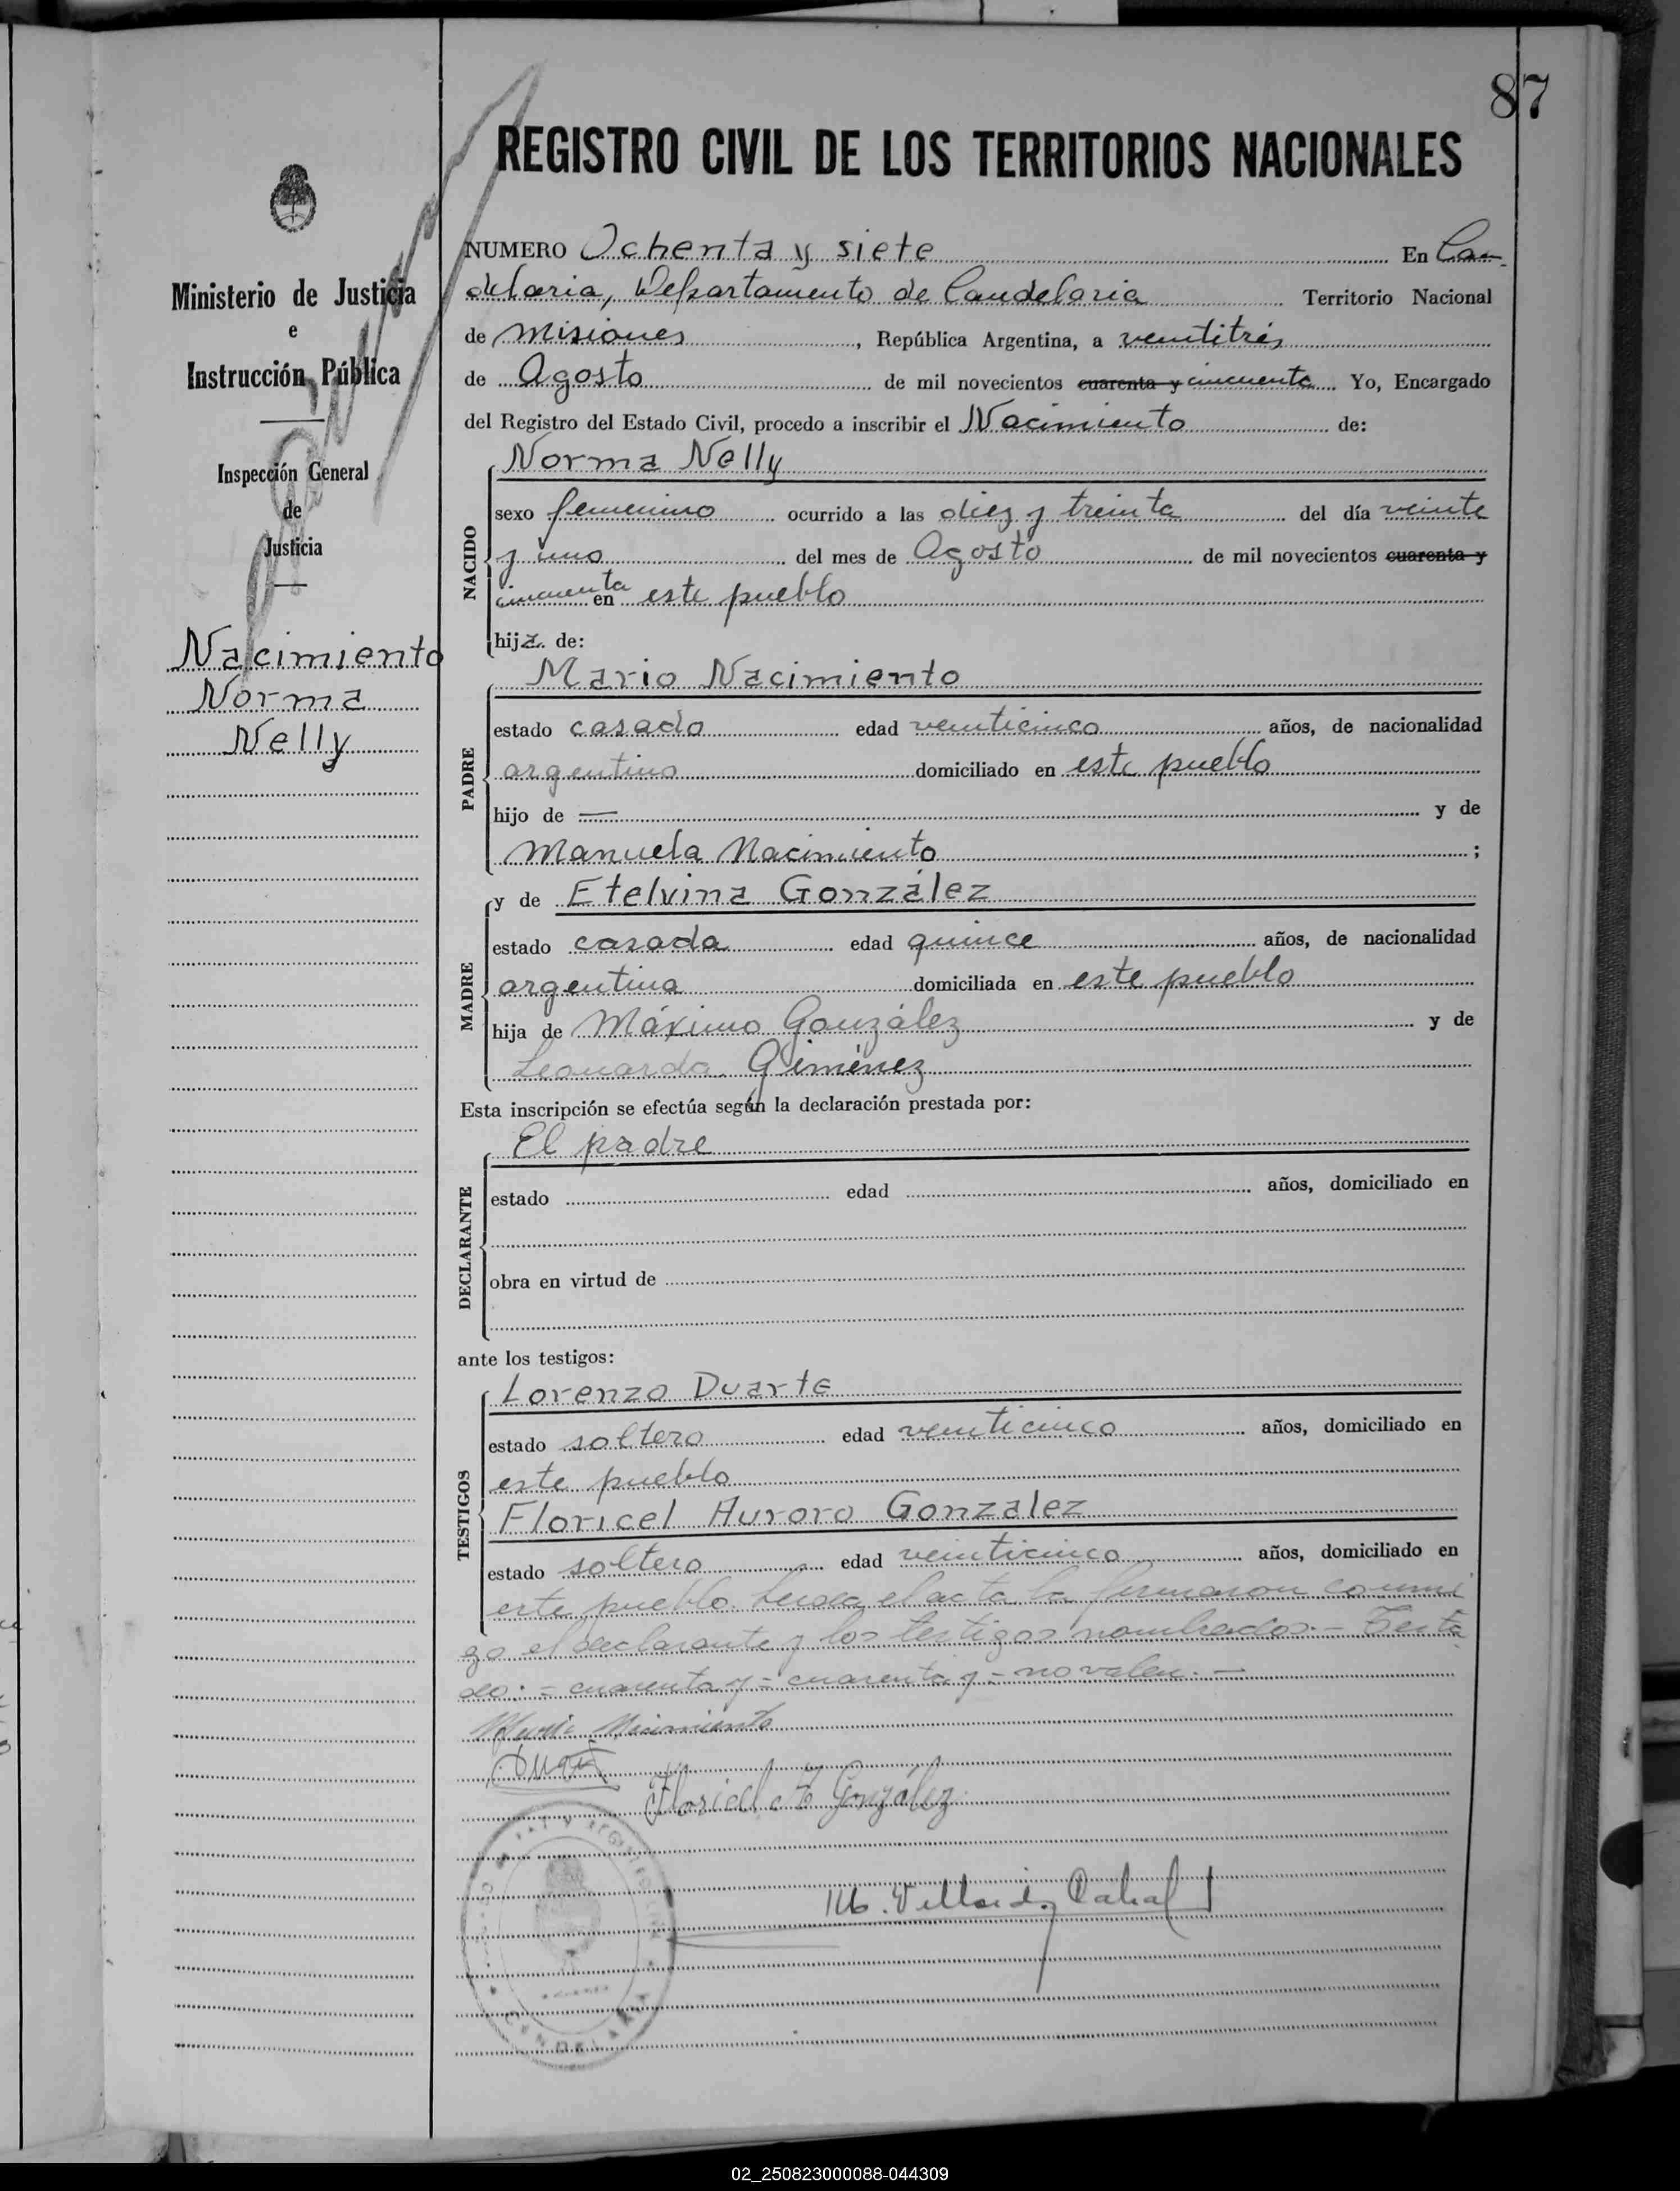 87
REGISTRO CIVIL DE LOS TERRITORIOS NACIONALES
Ministerio de Justicia
e
Instrucción Pública
Inspección General
de
Justicia
Nacimiento
Norma
Nelly
NUMERO Ochenta y siete En Can-
delaria, Departamento de Candelaria Territorio Nacional
de Misiones, República Argentina, a veintitrés
de Agosto de mil novecientos cuarenta y cincuenta Yo, Encargado
del Registro del Estado Civil, procedo a inscribir el Nacimiento de:
NACIDO
Norma Nelly
sexo femenino ocurrido a las diez y treinta del día veinte
y uno del mes de Agosto de mil novecientos cuarenta y
cincuenta en este pueblo
hija de:
PADRE
Mario Nacimiento
estado casado edad veinticinco años, de nacionalidad
argentino domiciliado en este pueblo
hijo de — y de
Manuela Nacimiento ;
MADRE
y de Etelvina González
estado casada edad quince años, de nacionalidad
argentina domiciliada en este pueblo
hija de Máximo González y de
Leonarda Giménez
Esta inscripción se efectúa según la declaración prestada por:
DECLARANTE
El padre
estado edad años, domiciliado en
obra en virtud de
ante los testigos:
TESTIGOS
Lorenzo Duarte
estado soltero edad veinticinco años, domiciliado en
este pueblo
Floricel Auroro Gonzalez
estado soltero edad veinticinco años, domiciliado en
este pueblo. Leida el acta la firmaron conmi
go el declarante y los testigos nombrados.- Testa
do: = cuarenta y = cuarenta y = no valen. —
Mario Nacimiento
Duarte
Floricel A González
CANDELARIA
02_250823000088-044309